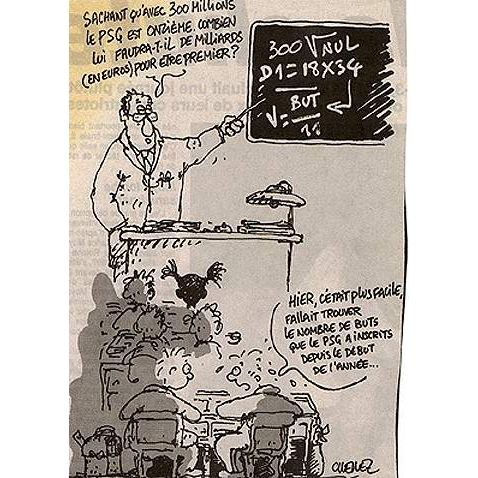 SACHANT QU'AVEC 300 MILLIONS
LE PSG EST ONZIÈME. COMBIEN
LUI FAUDRA-T-IL DE MILLIARDS
(EN EUROS) POUR ÊTRE PREMIER ?
300 √NUL
D1=18X34
V= BUT
11
HIER, C'ÉTAIT PLUS FACILE,
FALLAIT TROUVER
LE NOMBRE DE BUTS
QUE LE PSG A INSCRITS
DEPUIS LE DÉBUT
DE L'ANNÉE...